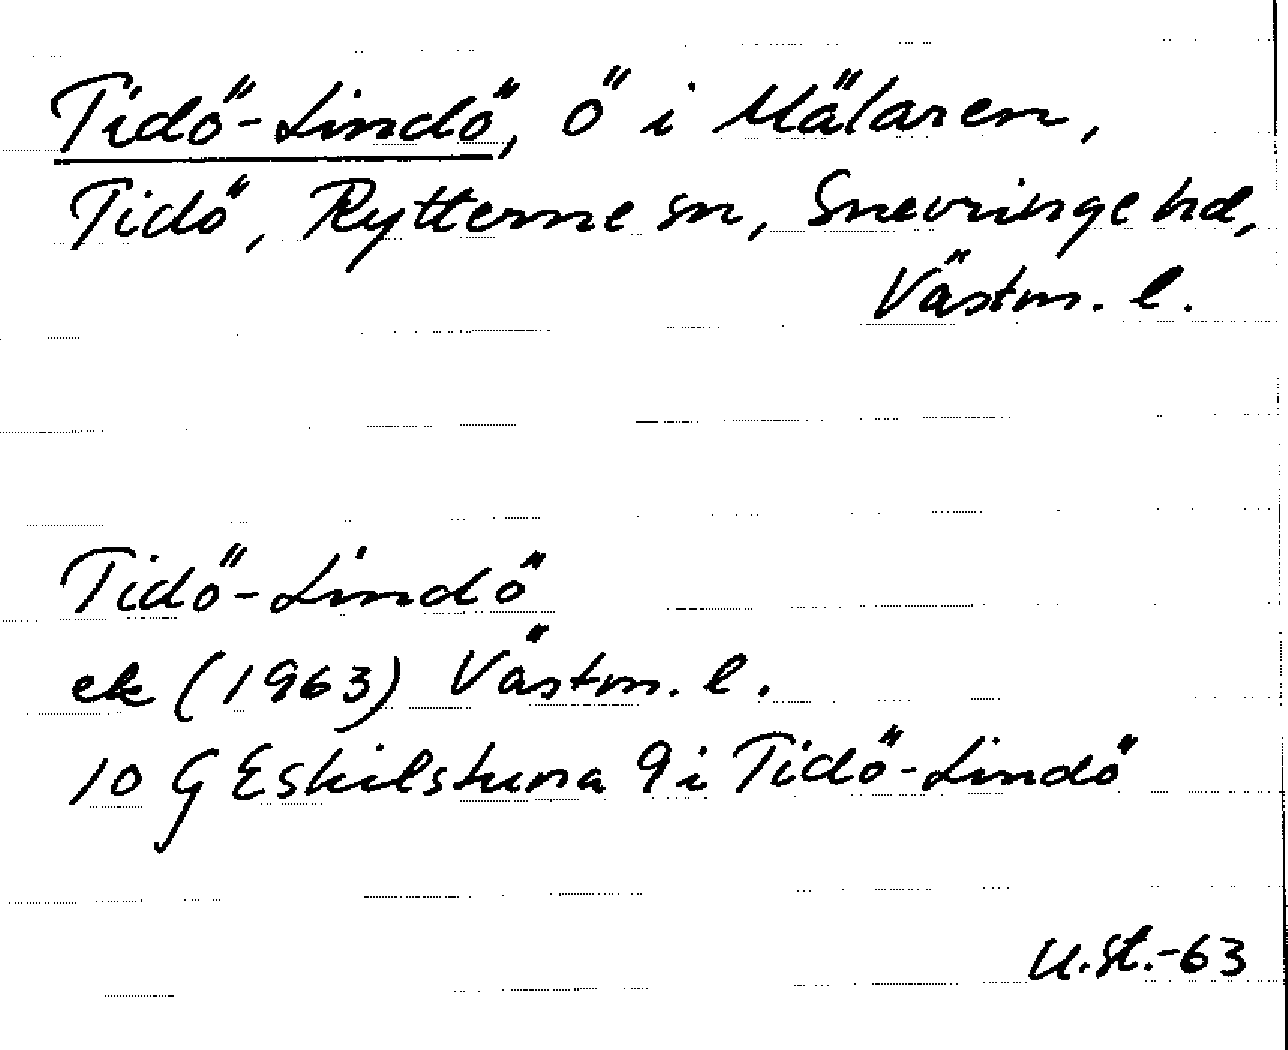 Tidö-Lindö, ö i Mälaren,
Tidö, Rytterne sn, Snevringe hd,
Västm. l.
Tidö-Lindö
ek (1963) Västm. l.
10 G Eskilstuna 9 i Tidö-Lindö
U.St.-63